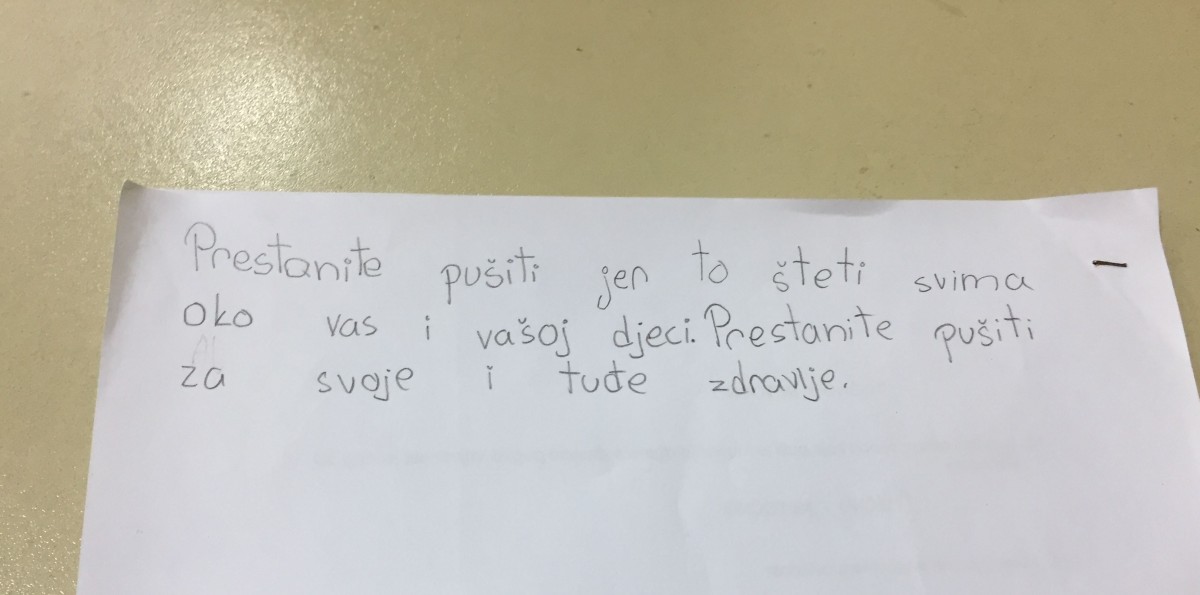 Prestanite pušiti jer to šteti svima
oko vas i vašoj djeci. Prestanite pušiti
za svoje i tuđe zdravlje.